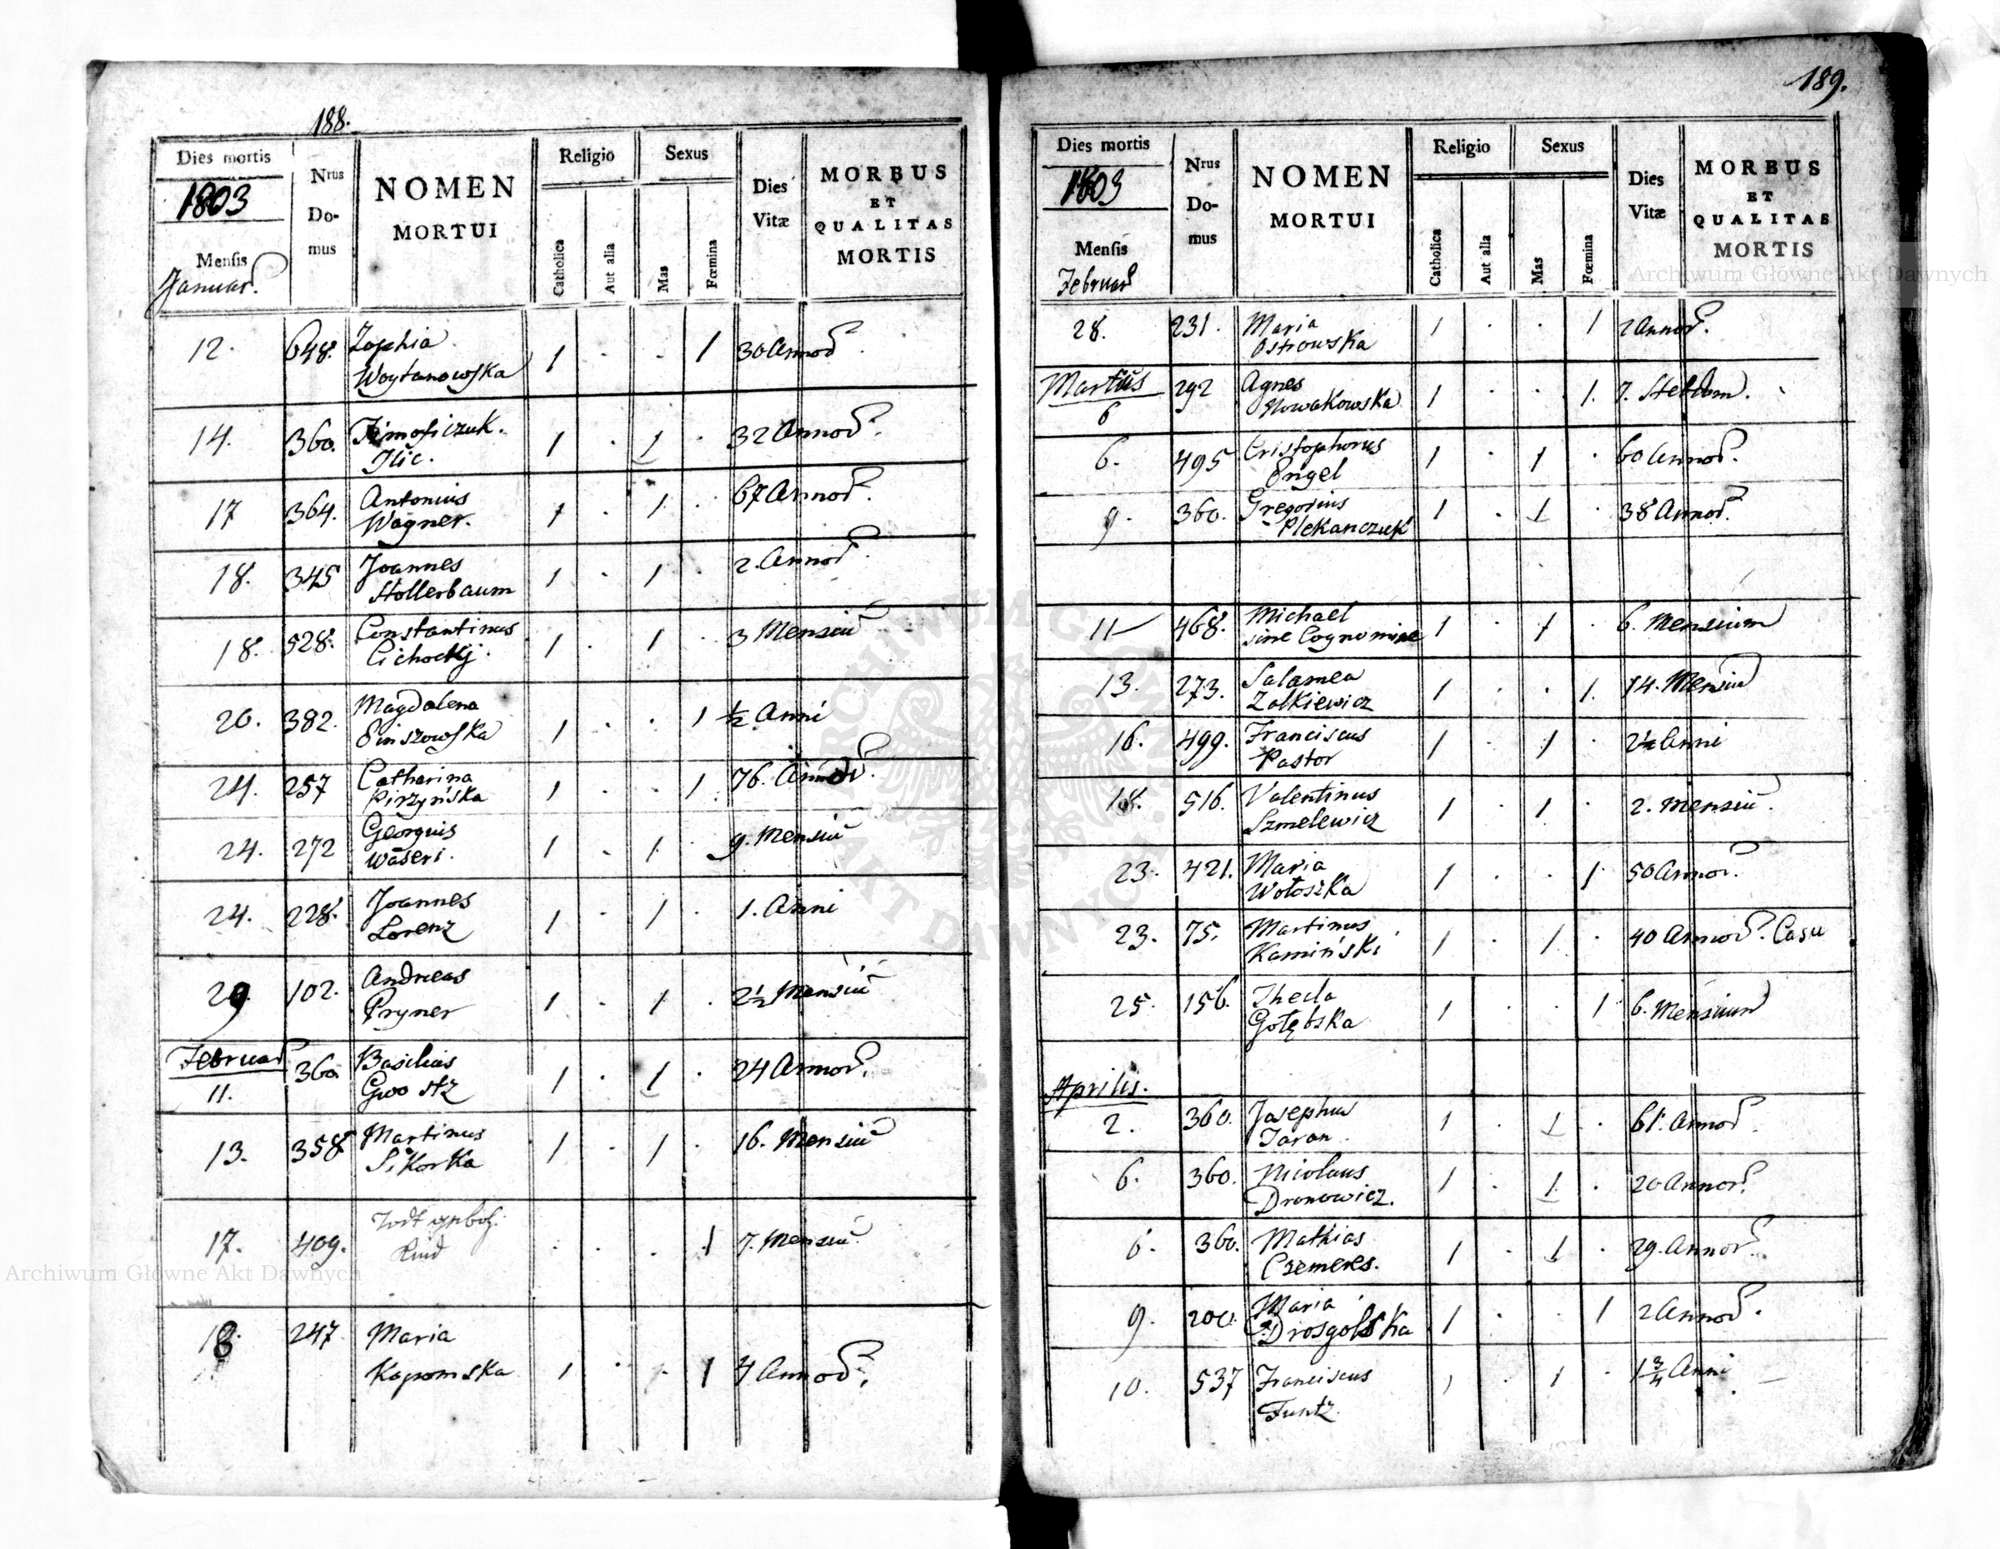 188.
Dies mortis
1803
Mensis
Januar.
Nrus
Do-
mus
NOMEN
MORTUI
Religio
Catholica
Aut alia
Sexus
Mas
Fœmina
Dies
Vitæ
MORBUS
ET
QUALITAS
MORTIS
12. 648. Zophia 1 . . 1 30 Annor.
Woytanowska
14. 360. 1 . 1 . 32 Annor.
Ilic.
17 364. Antonius 1 . 1 . 67 Annor.
Wagner.
18. 345 Joannes 1 . 1 . 2. Annor.
Hollerbaum
18. 528. Constantinus 1 . 1 . 3 Mensiū
Cichockj.
20. 382. Magdalena 1 . . 1 ½ Anni
24. 257 Catharina 1 . . 1 76. Annor.
Pirzyńska
24. 272 Georguis 1 . 1 . 9. Mensiū
Waseri.
24. 228. Joannes 1 . 1 . 1. Anni
Lorenz
29. 102. Andreas 1 . 1 . 2½ Mensiū
Pryner
Februar.
11. 360 Basilius 1 . 1 . 24 Annor.
13. 358 Martinus 1 . 1 . 16. Mensiū
Sikorka
17. 409. Todt . . . 1 7. Mensiū
Kind
18. 247. Maria 1 . . 1 4 Annor.
Kapomska
189.
Dies mortis
1803
Mensis
Februar
Nrus
Do-
mus
NOMEN
MORTUI
Religio
Catholica
Aut alia
Sexus
Mas
Fœmina
Dies
Vitæ
MORBUS
ET
QUALITAS
MORTIS
28. 231. Maria 1 . . 1 2 Annor.
Ostrowska
Martius
6 292 Agnes 1 . . 1. 7.
Nowakowska
6. 495 Cristophorus 1 . 1 . 60 Annor.
Engel
9. 360. Gregorius 1 . 1 . 38 Annor.
Plekanczuk
11 468. Michael 1 . 1 . 6. Mensium
sine Cognomine
13. 273. Salamea 1 . . 1. 14. Mensiū
Zolkiewicz
16. 499. Franciscus 1 . 1 . 2½ Anni
Pastor
18. 516. Valentinus 1 . 1 . 2. Mensiū.
Szmelewicz
23. 421. Maria 1 . . 1 50 Annor.
Wołoszka
23. 75. Martinus 1 . 1 . 40 Annor. Casu
Kamiński
25. 156. Thecla 1 . . 1 6. Mensium
Gołębska
Aprilis.
2. 360. Josephus 1 . 1 . 61. Annor.
Taran.
6. 360. Nicolaus 1 . 1 . 20 Annor.
Dronowicz.
6. 360. Mathias 1 . 1 . 29. Annor.
Czemeres.
9. 200. Maria 1 . . 1 2 Annor.
Drosgolska
10. 537 Franciscus 1 . 1 . 1¾ Anni
Funtz.
Archiwum Główne Akt Dawnych
Archiwum Główne Akt Dawnych
ARCHIWUM GŁÓWNE AKT DAWNYCH